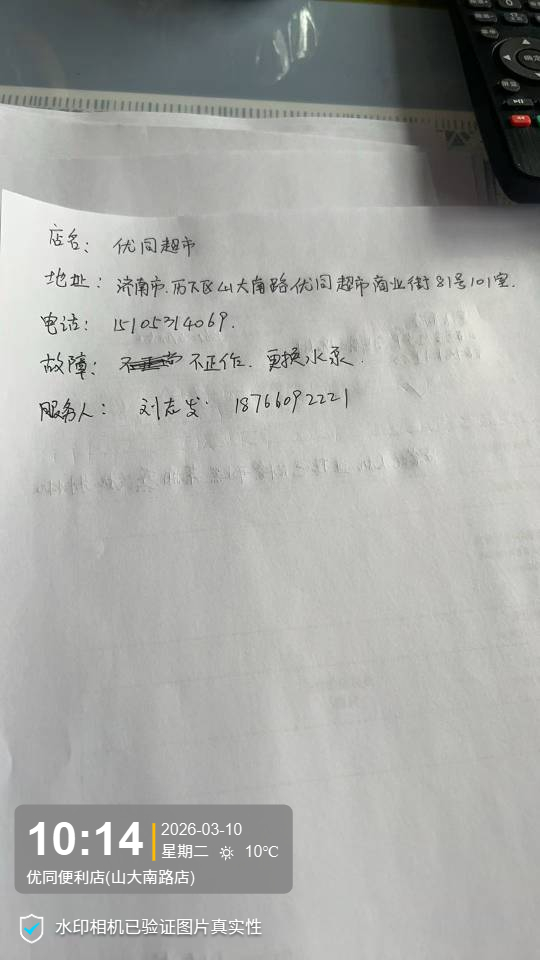 店名：优同超市
地址：济南市.历下区山大南路优同超市商业街81号101室.
电话：15105314069.
故障：不工作.更换水泵.
服务人：刘志发 18766092221
10:14
2026-03-10
星期二 10℃
优同便利店(山大南路店)
水印相机已验证图片真实性